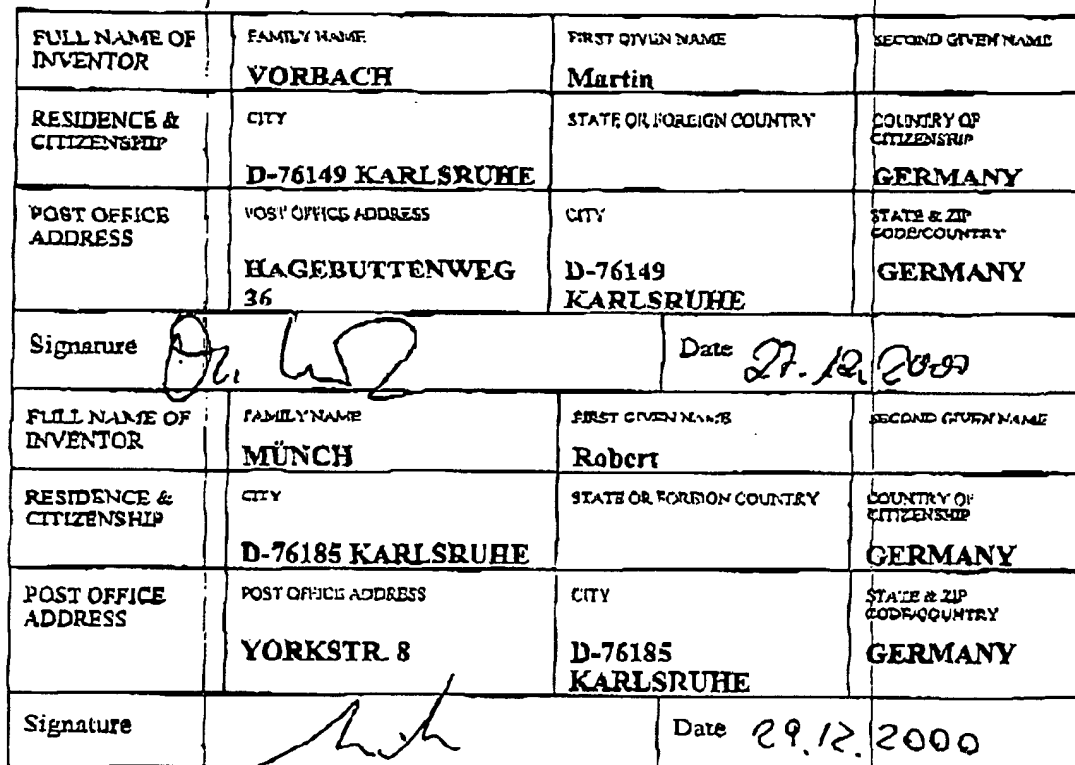 FULL NAME OF INVENTOR
FAMILY NAME
VORBACH
FIRST GIVEN NAME
Martin
SECOND GIVEN NAME
RESIDENCE & CITIZENSHIP
CITY
D-76149 KARLSRUHE
STATE OR FOREIGN COUNTRY
COUNTRY OF CITIZENSHIP
GERMANY
POST OFFICE ADDRESS
POST OFFICE ADDRESS
HAGEBUTTENWEG
36
CITY
D-76149
KARLSRUHE
STATE & ZIP CODE/COUNTRY
GERMANY
Signature
Date 27.12.2000
FULL NAME OF INVENTOR
FAMILY NAME
MÜNCH
FIRST GIVEN NAME
Robert
SECOND GIVEN NAME
RESIDENCE & CITIZENSHIP
CITY
D-76185 KARLSRUHE
STATE OR FOREIGN COUNTRY
COUNTRY OF CITIZENSHIP
GERMANY
POST OFFICE ADDRESS
POST OFFICE ADDRESS
YORKSTR. 8
CITY
D-76185
KARLSRUHE
STATE & ZIP CODE/COUNTRY
GERMANY
Signature
Date 29.12.2000